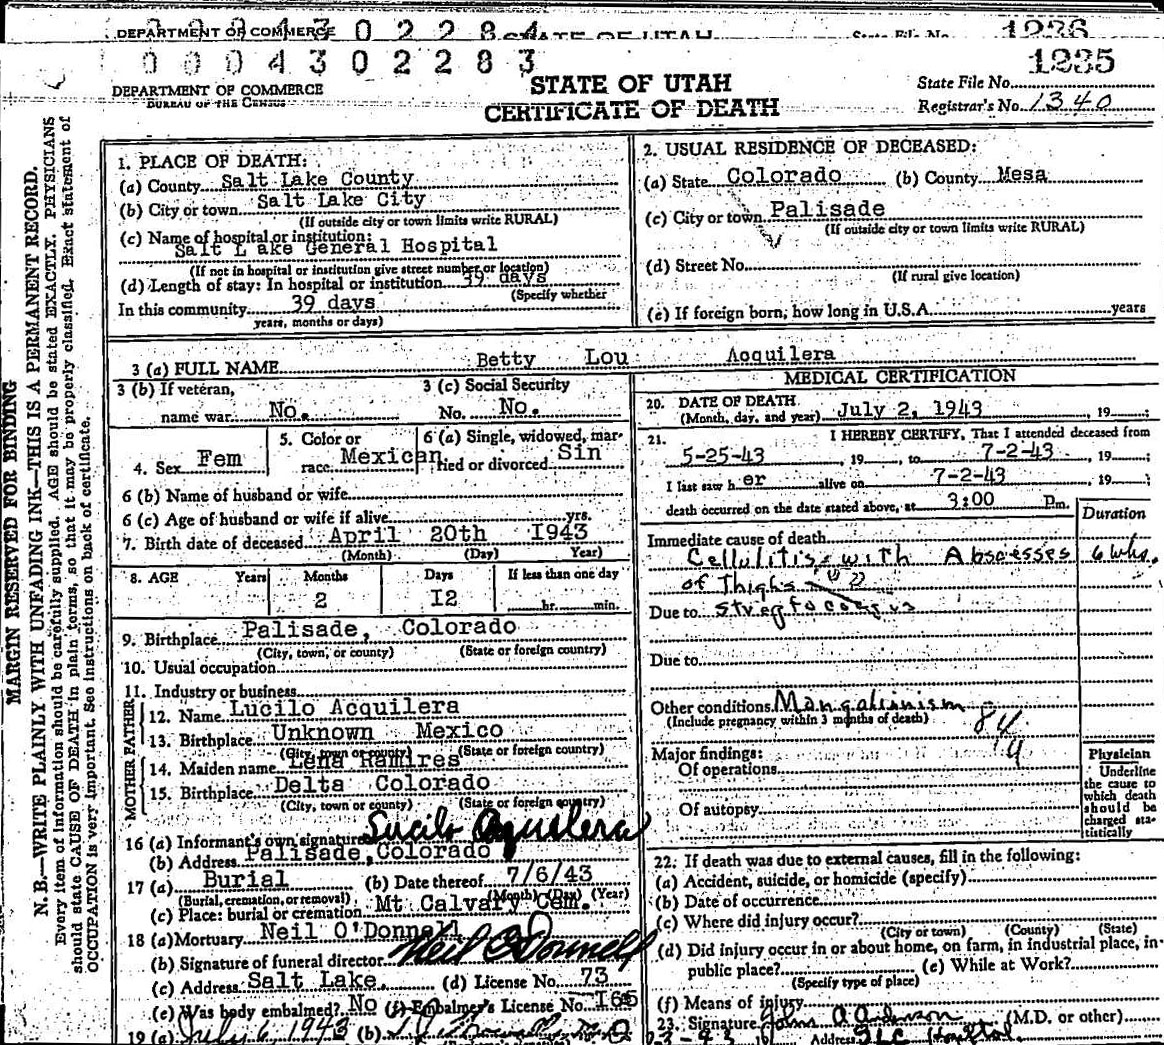 DEPARTMENT OF COMMERCE 0 2 2 8 4 STATE OF UTAH State File No. 1236
0 0 0 4 3 0 2 2 8 3 1235
DEPARTMENT OF COMMERCE STATE OF UTAH State File No.
BUREAU OF THE CENSUS CERTIFICATE OF DEATH Registrar's No. 1340
MARGIN RESERVED FOR BINDING
N. B.—WRITE PLAINLY WITH UNFADING INK—THIS IS A PERMANENT RECORD.
Every item of information should be carefully supplied. AGE should be stated EXACTLY. PHYSICIANS
should state CAUSE OF DEATH in plain terms, so that it may be properly classified. Exact statement of
OCCUPATION is very important. See instructions on back of certificate.
1. PLACE OF DEATH:
(a) County Salt Lake County
(b) City or town Salt Lake City
(If outside city or town limits write RURAL)
(c) Name of hospital or institution:
Salt L ake General Hospital
(If not in hospital or institution give street number or location)
(d) Length of stay: In hospital or institution 39 days
(Specify whether
In this community 39 days
years, months or days)
2. USUAL RESIDENCE OF DECEASED:
(a) State Colorado (b) County Mesa
(c) City or town Palisade
(If outside city or town limits write RURAL)
(d) Street No.
(If rural give location)
(e) If foreign born; how long in U.S.A. years
3 (a) FULL NAME Betty Lou Acquilera
3 (b) If veteran, 3 (c) Social Security
name war No. No. No.
4. Sex Fem 5. Color or race Mexican 6 (a) Single, widowed, married or divorced Sin
6 (b) Name of husband or wife
6 (c) Age of husband or wife if alive yrs.
7. Birth date of deceased April 20th I943
(Month) (Day) Year)
8. AGE Years Months Days If less than one day
2 I2 hr. min.
9. Birthplace Palisade, Colorado
(City, town, or county) (State or foreign country)
10. Usual occupation
11. Industry or business
FATHER
12. Name Lucilo Acquilera
13. Birthplace Unknown Mexico
(City, town or county) (State or foreign country)
MOTHER
14. Maiden name Lena Ramires
15. Birthplace Delta Colorado
(City, town or county) (State or foreign country)
16 (a) Informant's own signature Lucilo Aquilera
(b) Address Palisade, Colorado
17 (a) Burial (b) Date thereof 7/6/43
(Burial, cremation, or removal) (Month) (Day) (Year)
(c) Place: burial or cremation Mt Calvary Cem.
18 (a) Mortuary Neil O'Donnell
(b) Signature of funeral director Neil O'Donnell
(c) Address Salt Lake, (d) License No. 73
(e) Was body embalmed? No (f) Embalmer's License No. I65
19 (a) July 6, 1943 (b)
MEDICAL CERTIFICATION
20. DATE OF DEATH
(Month, day, and year) July 2, 1943, 19
21. I HEREBY CERTIFY, That I attended deceased from
5-25-43, 19, to 7-2-43, 19
I last saw her alive on 7-2-43, 19
death occurred on the date stated above, at 3:00 P.m.
Duration
Immediate cause of death
Cellulitis with Abscesses 6 wks.
of Thighs
Due to streptococcus
Due to
Other conditions Mongolianism
(Include pregnancy within 3 months of death)
84
19
Major findings:
Of operations
Of autopsy
Physician
Underline
the cause to
which death
should be
charged sta-
tistically
22. If death was due to external causes, fill in the following:
(a) Accident, suicide, or homicide (specify)
(b) Date of occurrence
(c) Where did injury occur?
(City or town) (County) (State)
(d) Did injury occur in or about home, on farm, in industrial place, in
public place? (e) While at Work?
(Specify type of place)
(f) Means of injury
23. Signature John A Anderson (M.D. or other)
Address SLC Hospital